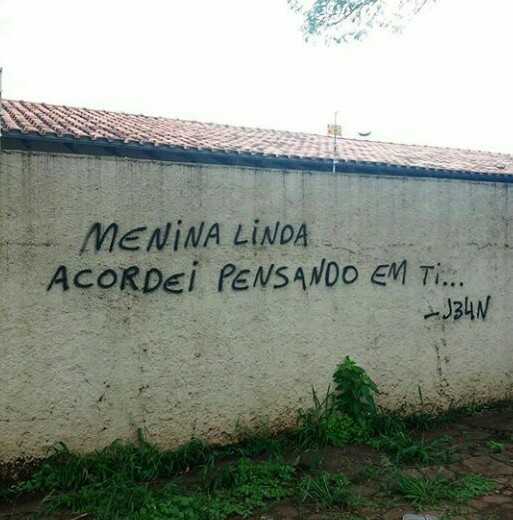 MENINA LINDA
ACORDEI PENSANDO EM Ti...
_J34N